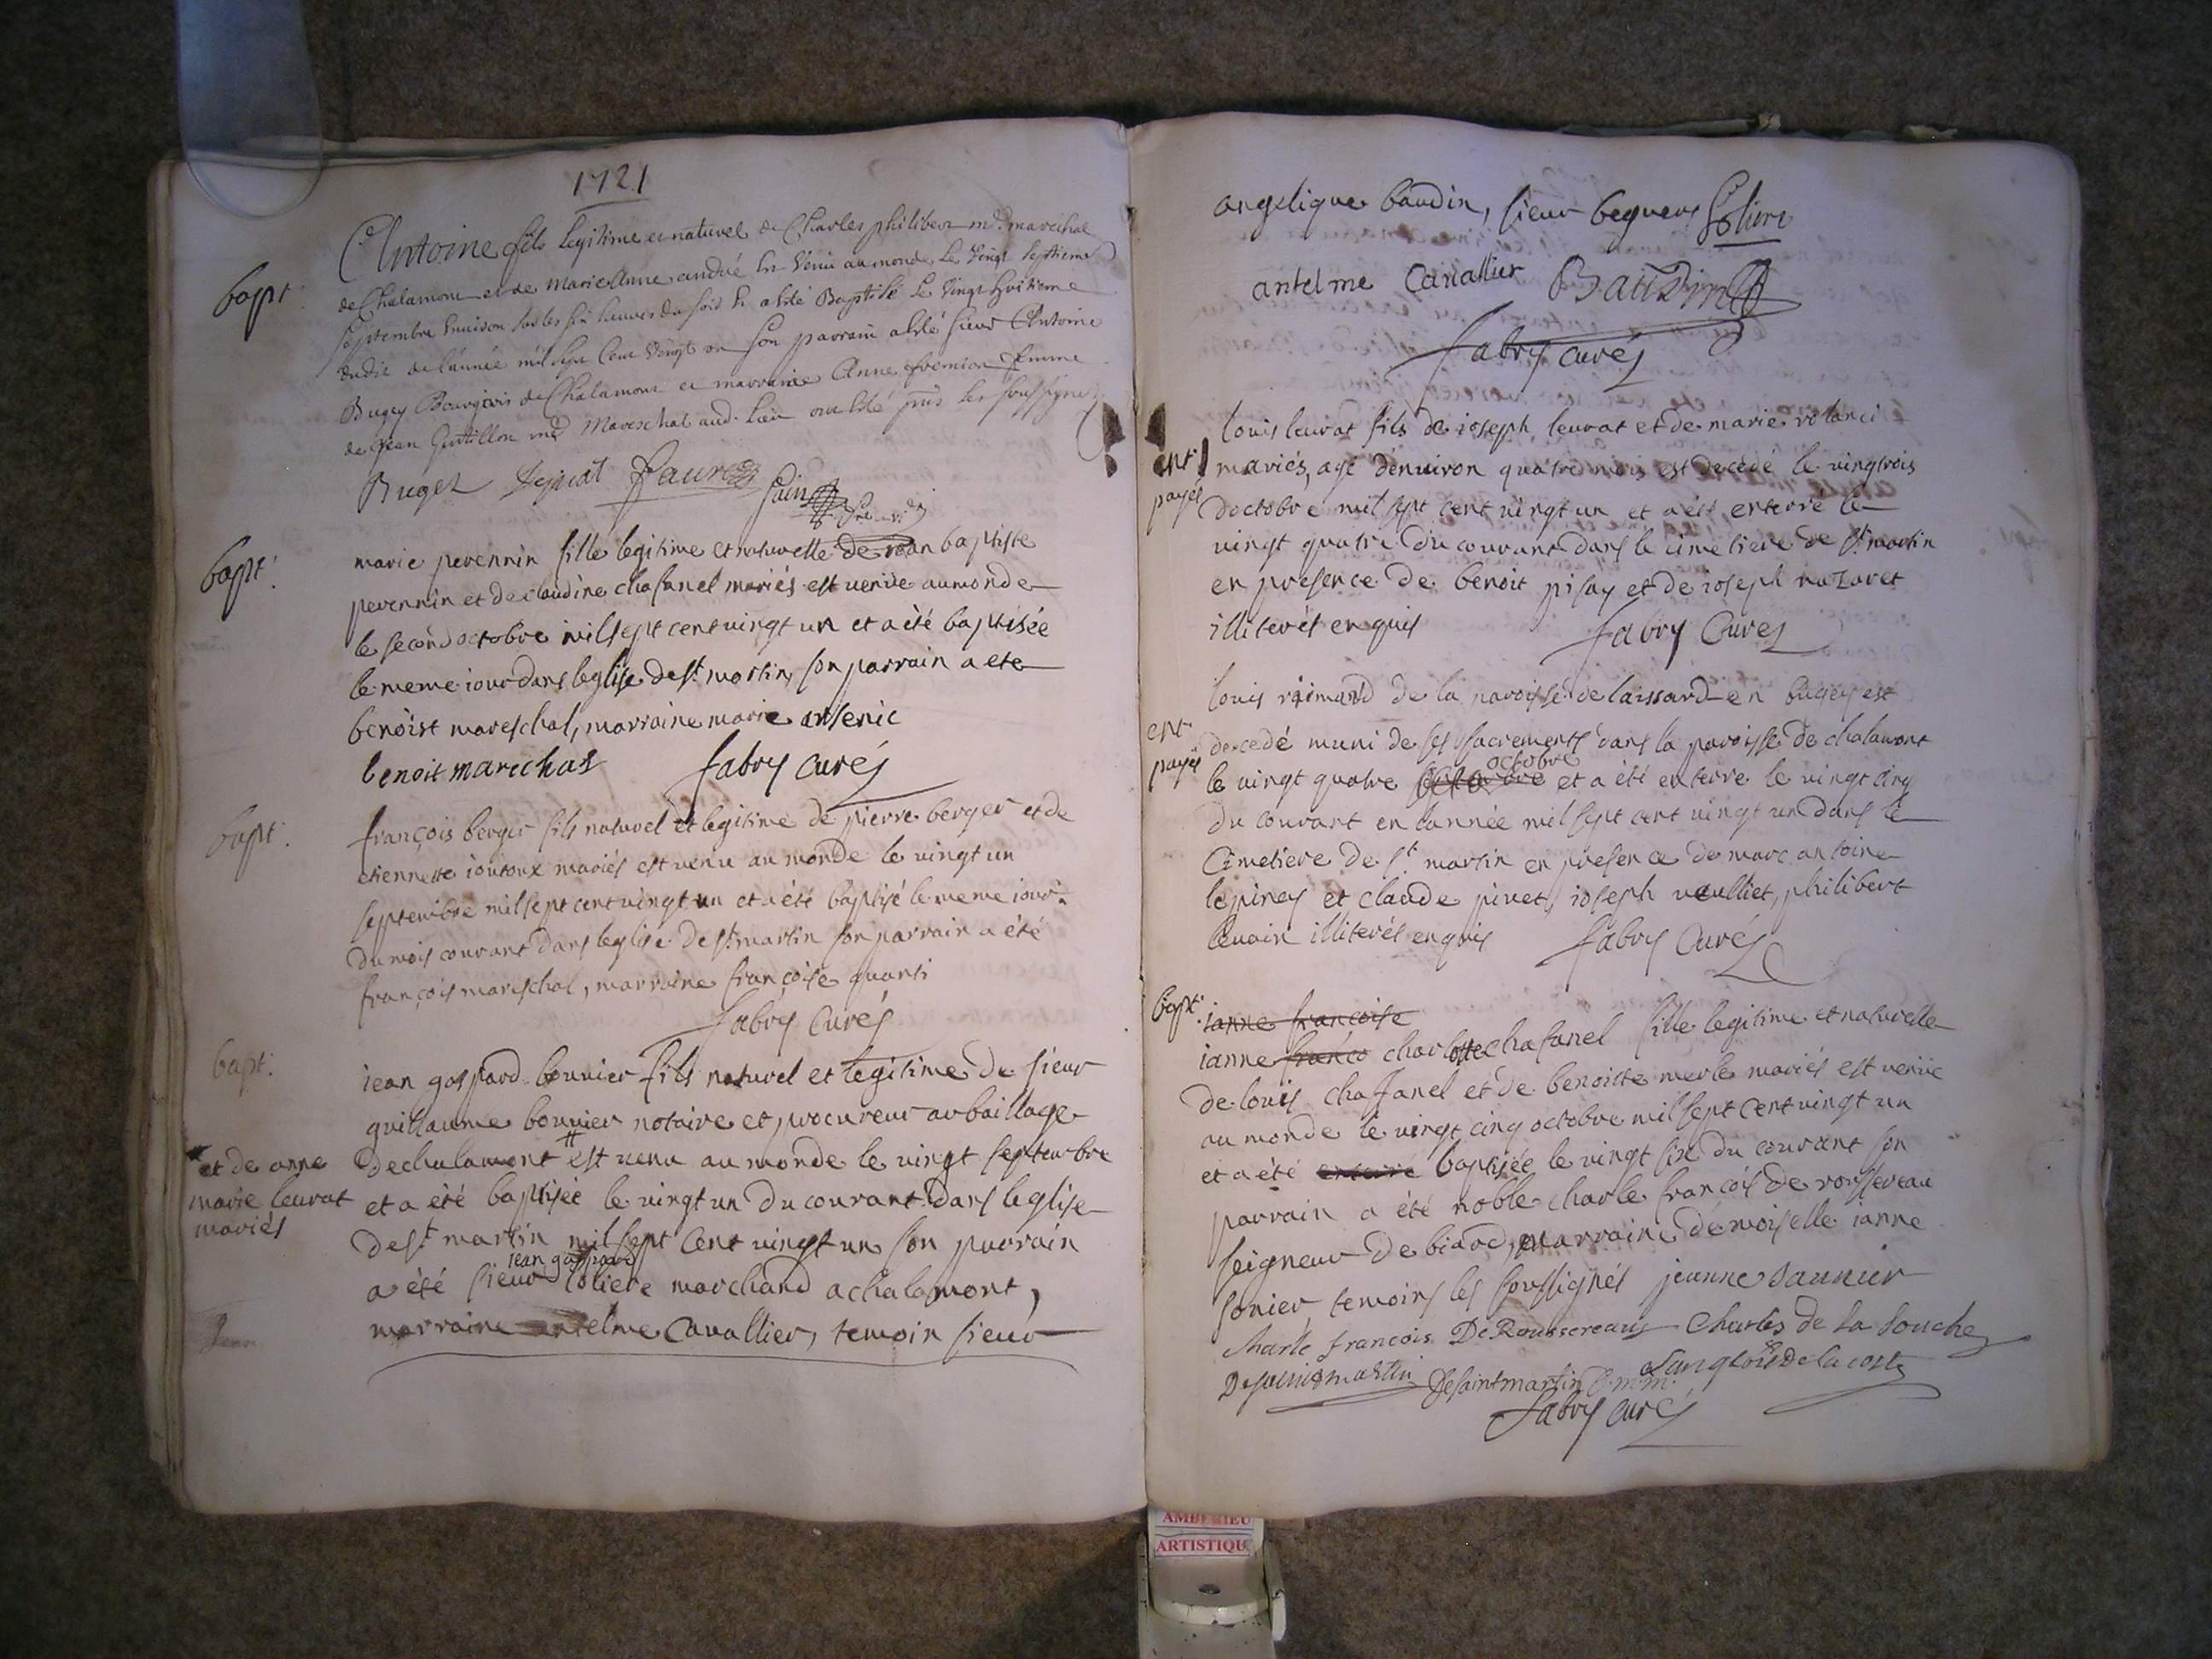 1721
bapt:
Antoine fils legitime et naturel de Charles philibert md. marechal
de Chalamont et de Marie Anne andué est venu au monde le vingt septieme
septembre environ les six heures du soir et a esté Baptisé le vingt huitieme
dudit de l'année mil sept cent vingt un son parrain a esté sieur Antoine
Bugey Bourgeois de Chalamont et marraine Anne fremion femme
de jean Guttillon md Mareschal aud. lieu ont esté pnts les soussignez
Bugey Faure Sain
bapt:
marie perennin fille legitime et naturelle de jean baptiste
perennin et de claudine chasanel mariés est venüe au monde
le second octobre mil sept cent vingt un et a été baptisée
le meme iour dans leglise de st martin, son parrain a ete
benoist mareschal, marraine marie arsenic
benoit marechal fabry curéz
bapt:
françois berger fils naturel et legitime de pierre berger et de
etiennette ioutoux mariés est venu au monde le vingt un
septembre mil sept cent vingt un et a été baptisé le meme iour
du mois courant dans leglise de st martin son parrain a été
françois mareschal, marraine françoise quanti
fabry curéz
bapt:
iean gaspard bouvier fils naturel et legitime de sieur
guillaume bouvier notaire et procureur au baillage
de chalamont # est venu au monde le vingt septembre
et de anne
marie leurat
mariés
et a été baptisée le vingt un du courant dans leglise
de st martin mil sept cent vingt un son parrain
iean gaspard
a été sieur coliere marchand a chalamont,
marraine antelme cavallier, temoin sieur
angelique baudin, sieur beguers Coliere
antelme Cavallier Baudin
fabry curéz
ent:
payés
louis leurat fils de ioseph leurat et de marie rolanci
mariés, agé denviron quatre mois est decedé le vingtrois
doctobre mil sept cent vingt un et a été enterré le
vingt quatre du courant dans le cimetiere de st martin
en presence de benoit pisay et de ioseph nazaret
illiterés enquis fabry Curez
ent
payés
louis raimand de la paroisse de laissard en bugey est
decedé muni de ses sacrements dans la paroisse de chalamont
octobre
le vingt quatre octobre et a été enterre le vingt cinq
du courant en lannée mil sept cent vingt un dans le
Cimetiere de st martin en presence de marc antoine
lepiney et claude pivet, ioseph veulliet, philibert
levain illiterés enquis fabry Curéz
bapt:
ianne francoise
ianne franco charlotte chasanel fille legitime et naturelle
de louis chasanel et de benoiste merle mariés est venüe
au monde le vingt cinq octobre mil sept cent vingt un
et a été enterré baptisée le vingt six du courant son
parrain a été noble charle françois de rousereau
seigneur de biard, marraine demoiselle ianne
sonier temoins les soussignés jeanne saunier
charle françois De Roussereau Charles de la Souche
Desaintmartin Desaintmartin Langlois de la coste
fabry curéz
AMBERIEU
ARTISTIQU